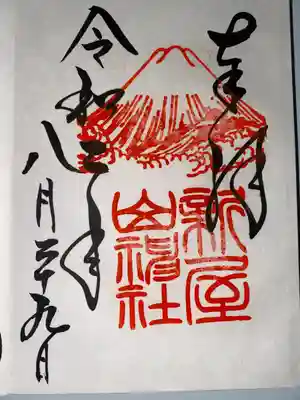 奉拝
新屋
山神社
令和年
八月二十九日